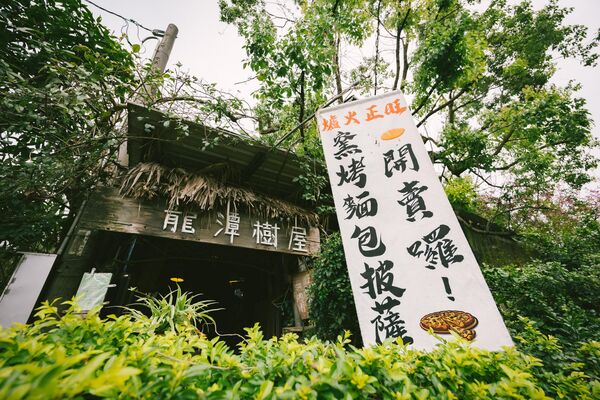 爐火正旺
窯烤麵包披薩
開賣囉！
龍潭樹屋